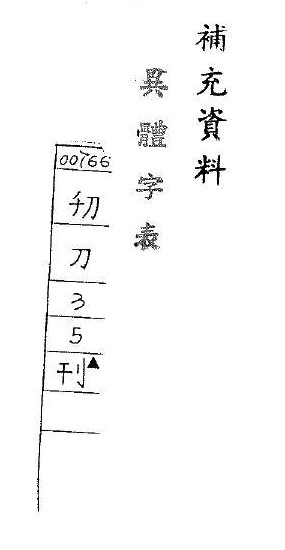 補充資料
異體字表
00766
刀
3
5
刊▲